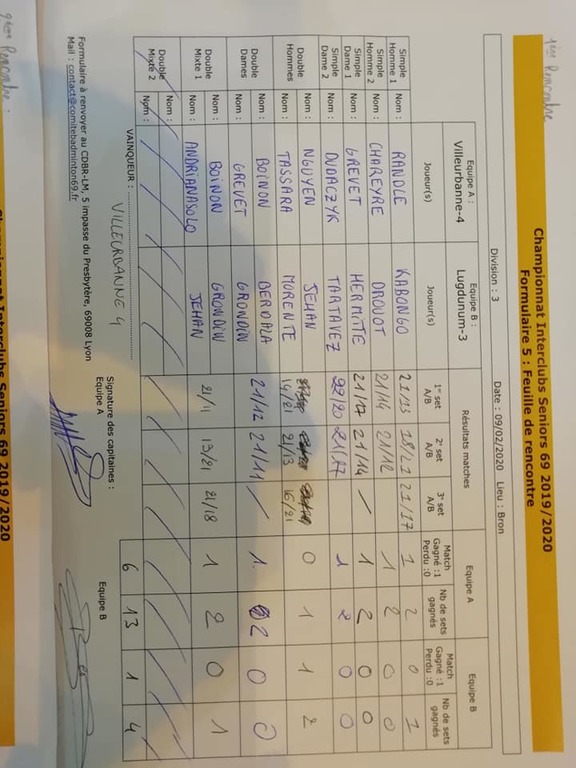 1ère Rencontre
Championnat Interclubs Seniors 69 2019/2020
Formulaire 5 : Feuille de rencontre
Division : 3 Date : 09/02/2020 Lieu : Bron
Equipe A : Villeurbanne-4 Equipe B : Lugdunum-3 Résultats matches Equipe A Equipe B
Joueur(s) Joueur(s) 1er set A/B 2e set A/B 3e set A/B Match Gagné :1 Perdu :0 Nb de sets gagnés Match Gagné :1 Perdu :0 Nb de sets gagnés
Simple Homme 1 Nom : RANDLE KABONGO 21/13 18/21 21/17 1 2 0 1
Simple Homme 2 Nom : CHAREYRE DROUOT 21/14 21/12 1 2 0 0
Simple Dame 1 Nom : GREVET HERMITTE 21/17 21/14 / 1 2 0 0
Simple Dame 2 Nom : DUDACZYK TARTAVEZ 22/20 21/17 1 2 0 0
Double Hommes Nom : NGUYEN JEHAN
Nom : TASSARA MORENTE 14/21 21/13 16/21 0 1 1 2
Double Dames Nom : BOINON BERDALA 21/12 21/11 / 1 2 0 0
Nom : GREVET GRONDIN
Double Mixte 1 Nom : BOINON GRONDIN 21/11 13/21 21/18 1 2 0 1
Nom : ANDRIANASOLO JEHAN
Double Mixte 2 Nom :
Nom :
6 13 1 4
VAINQUEUR : VILLEURBANNE 4
Signature des capitaines :
Equipe A Equipe B
Formulaire à renvoyer au CDBR-LM, 5 impasse du Presbytère, 69008 Lyon
Mail : contact@comitebadminton69.fr
Rencontre :
Championnat Interclubs Seniors 69 2019/2020